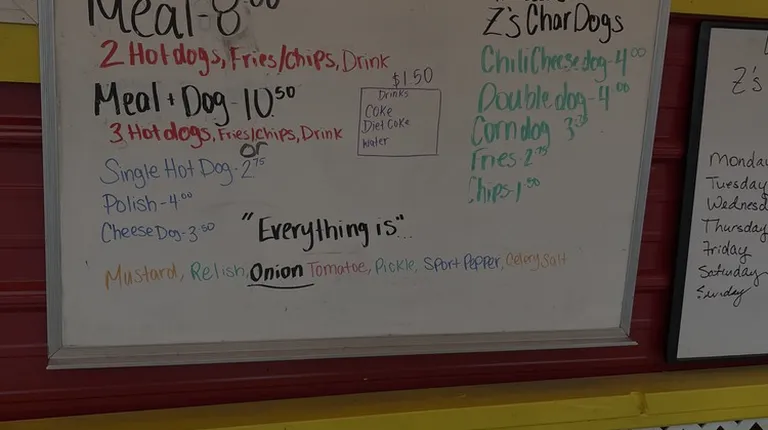 Meal-8.00
2 Hotdogs, Fries/Chips, Drink
Meal + Dog-10.50
3 Hotdogs, Fries/Chips, Drink
or
Single Hot Dog-2.75
Polish-4.00
CheeseDog-3.50
$1.50
Drinks
Coke
Diet Coke
Water
Z's CharDogs
ChiliCheesedog-4.00
Doubledog-4.00
Corndog 3
Fries-2.75
Chips-1.50
"Everything is"
Mustard, Relish, Onion Tomatoe, Pickle, Sport Pepper, Celery Salt
Z's
Monda
Tuesday
Wednesd
Thursday
Friday
Saturday
Sunday